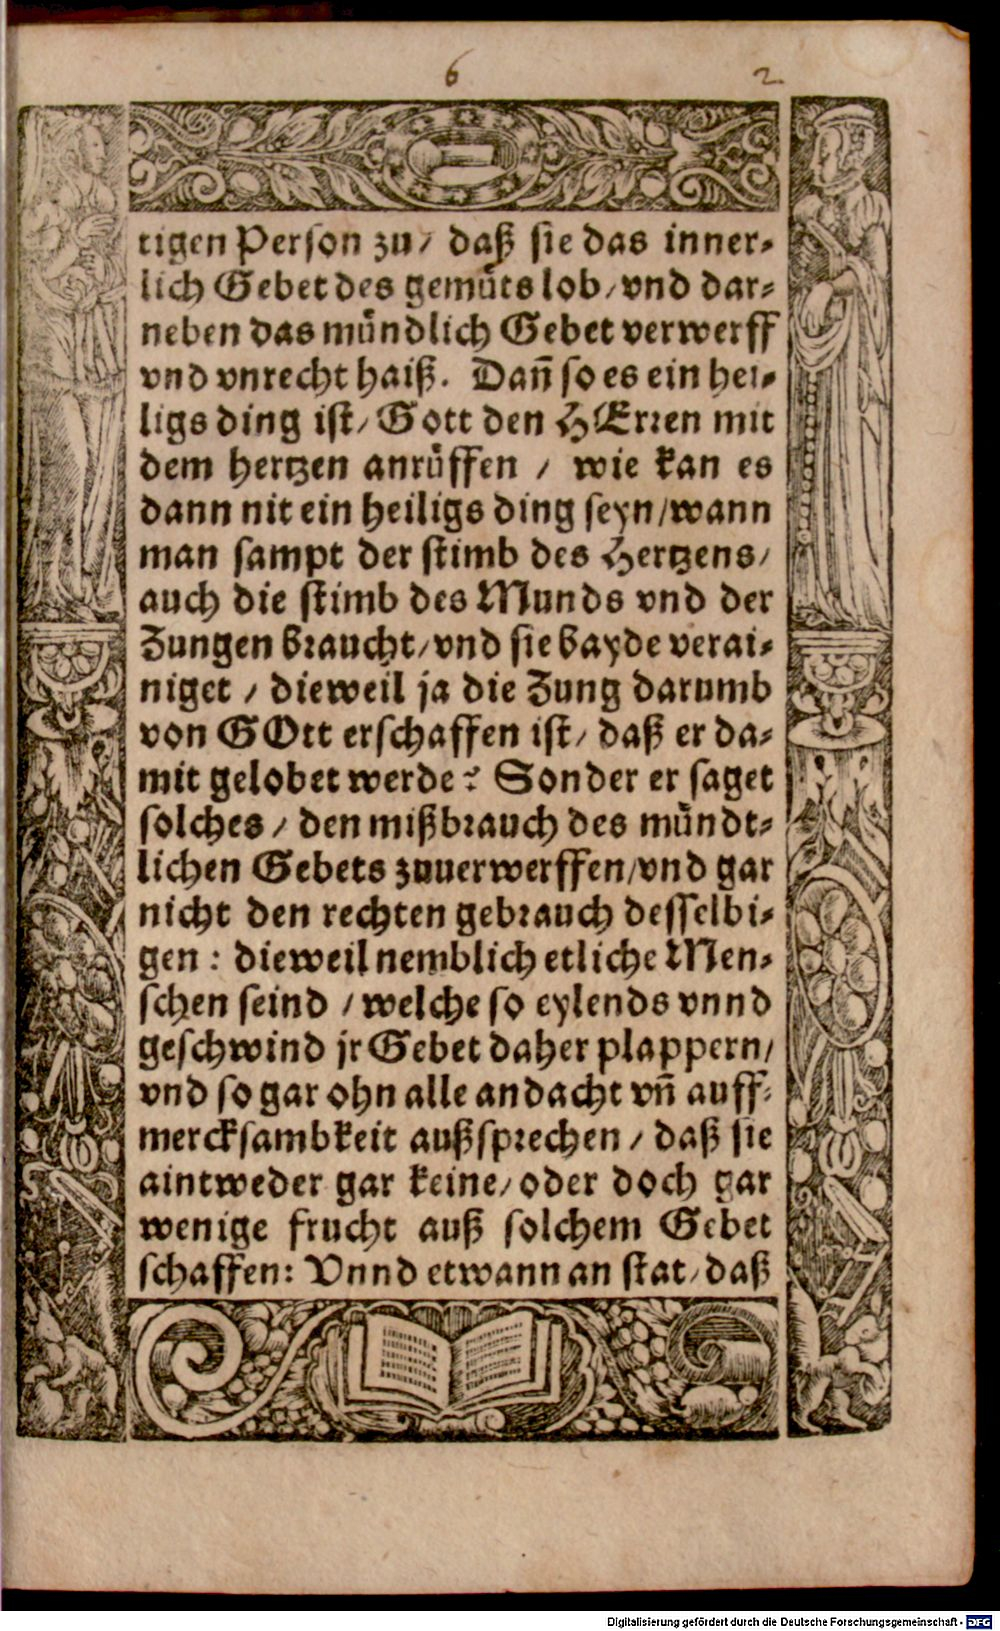 6 2
tigen Person zu / daß sie das inner-
lich Gebet des gemuͤts lob / vnd dar-
neben das muͤndlich Gebet verwerff
vnd vnrecht haiß. Dañ so es ein hei-
ligs ding ist / Gott den HErren mit
dem hertzen anruͤffen / wie kan es
dann nit ein heiligs ding seyn / wann
man sampt der stimb des Hertzens /
auch die stimb des Munds vnd der
Zungen braucht / vnd sie bayde verai-
niget / dieweil ja die Zung darumb
von GOtt erschaffen ist / daß er da-
mit gelobet werde? Sonder er saget
solches / den mißbrauch des muͤndt-
lichen Gebets zuuerwerffen / vnd gar
nicht den rechten gebrauch desselbi-
gen : dieweil nemblich etliche Men-
schen seind / welche so eylends vnnd
geschwind jr Gebet daher plappern /
vnd so gar ohn alle andacht vñ auff-
mercksambkeit außsprechen / daß sie
aintweder gar keine / oder doch gar
wenige frucht auß solchem Gebet
schaffen: Vnnd etwann an stat / daß
Digitalisierung gefördert durch die Deutsche Forschungsgemeinschaft - DFG